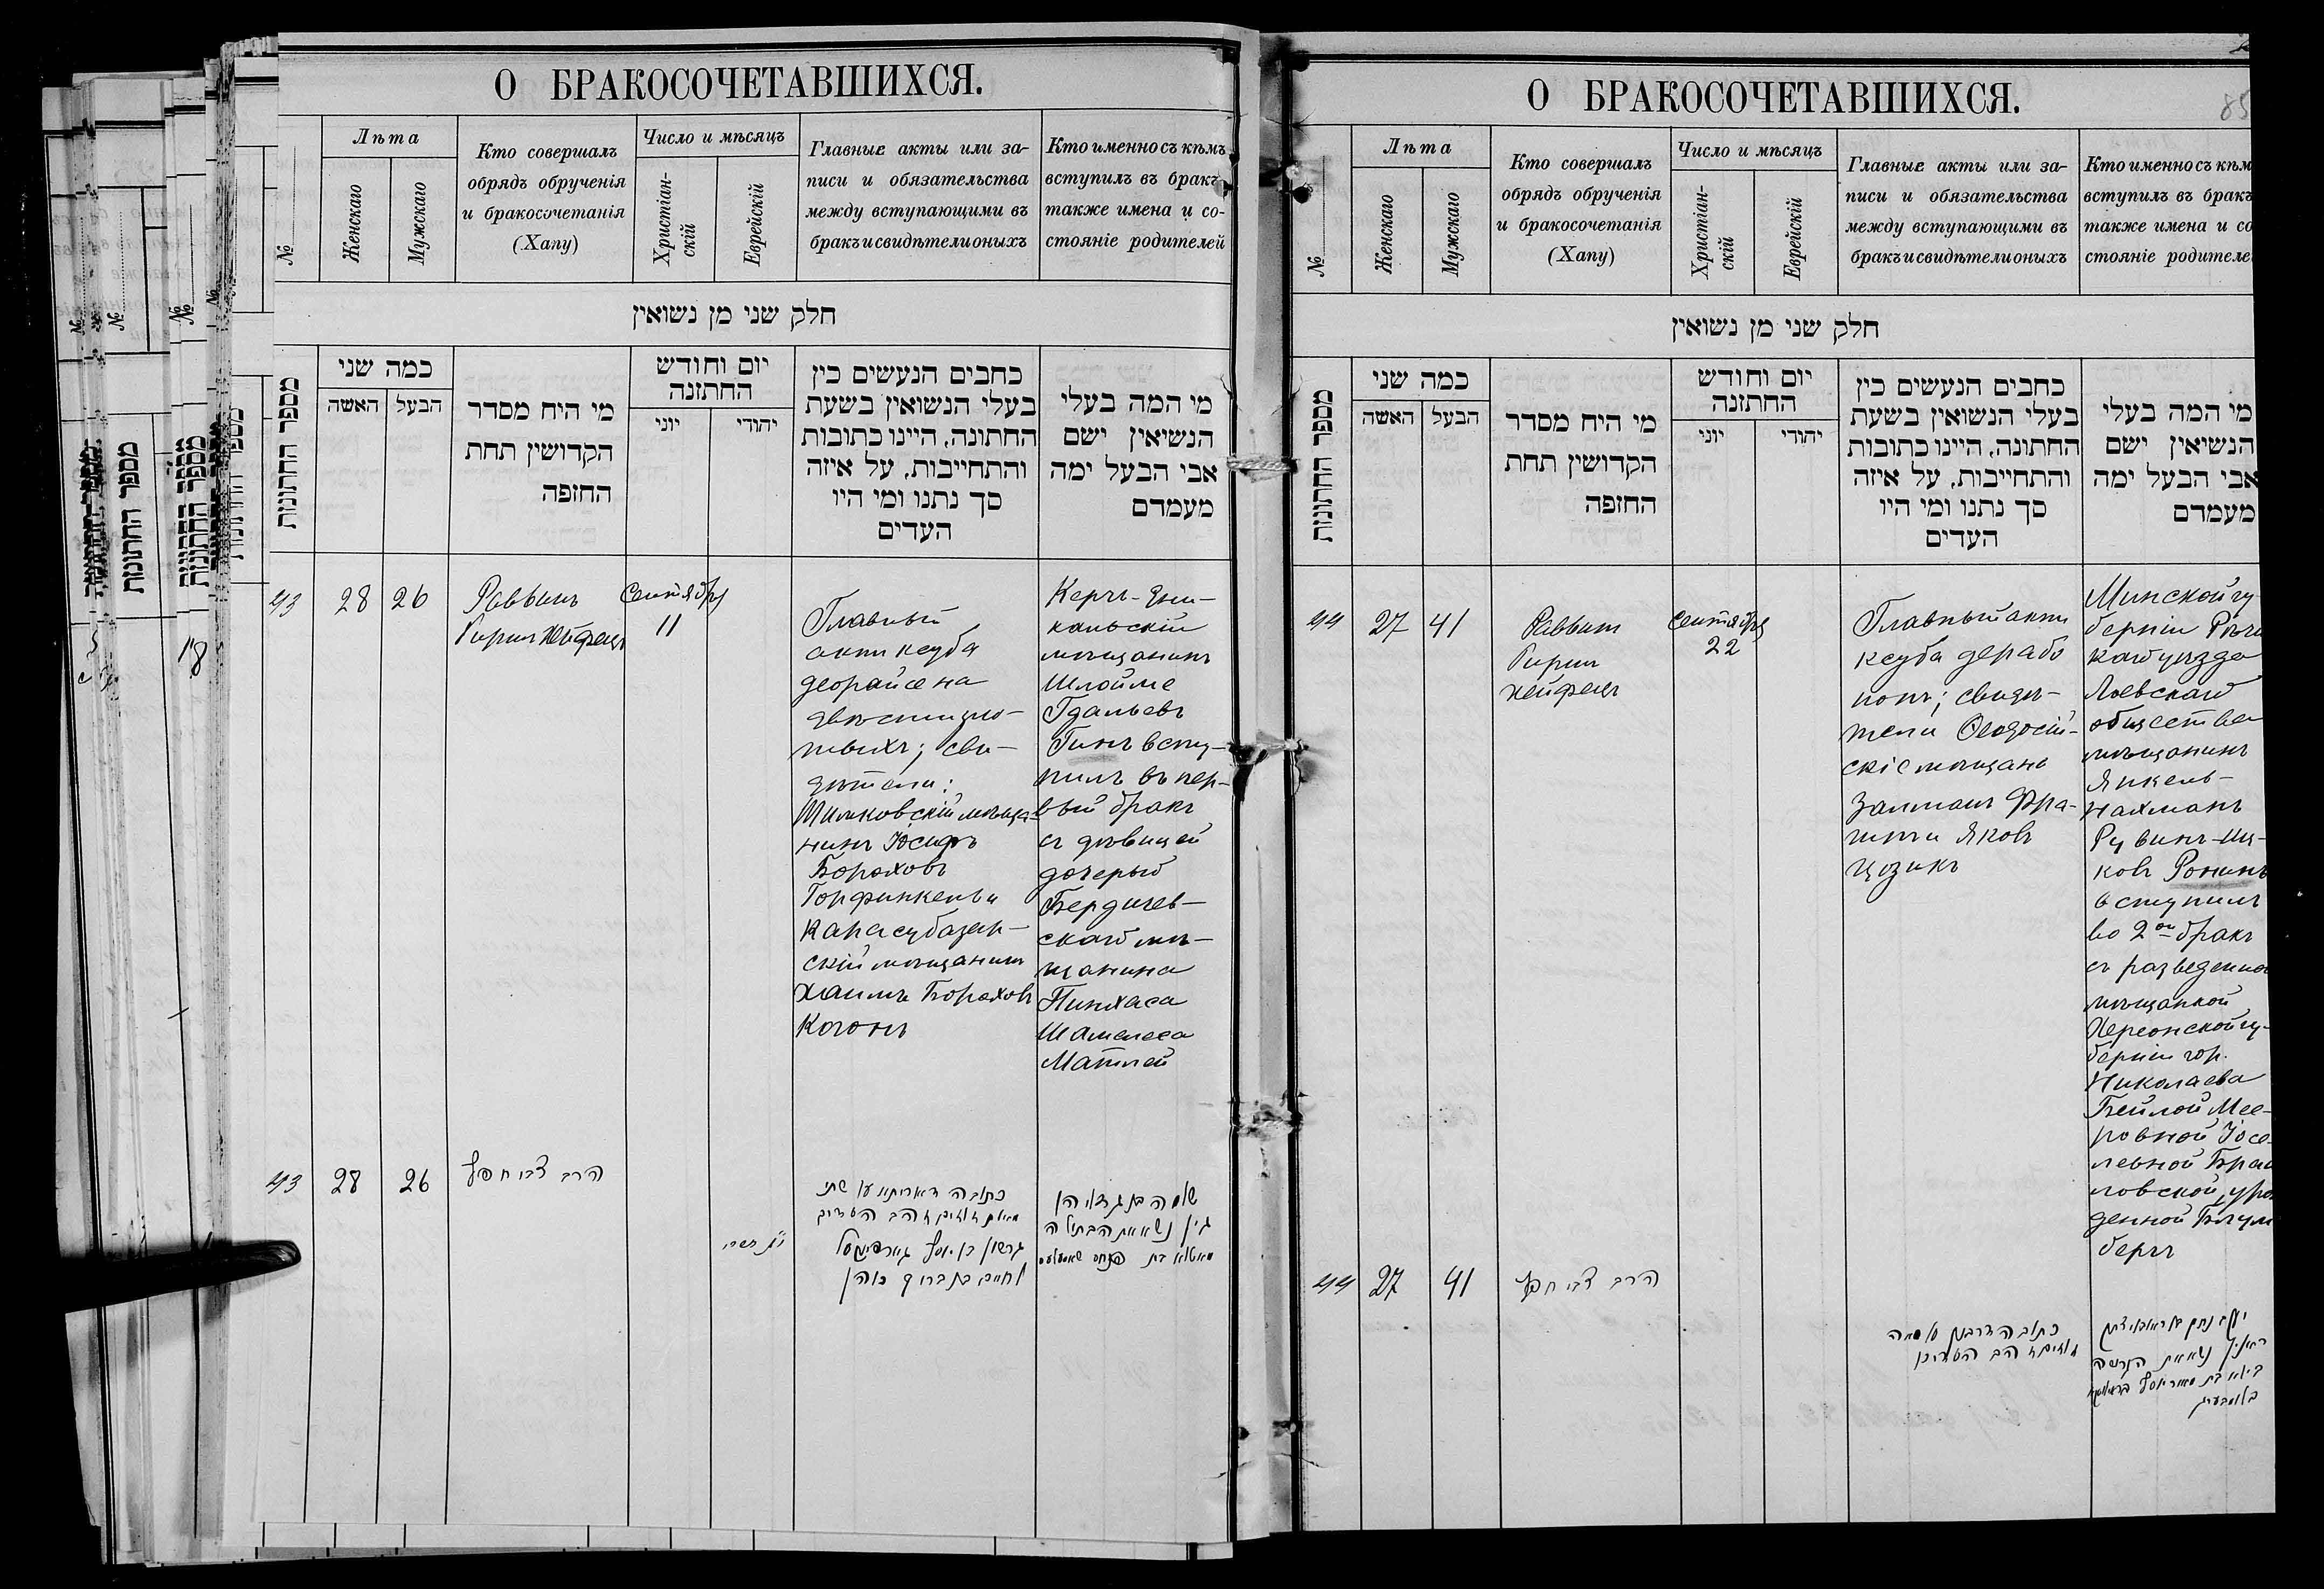 О БРАКОСОЧЕТАВШИХСЯ.
№
Лѣта
Женскаго
Мужскаго
Кто совершалъ
обрядъ обрученія
и бракосочетанія
(Хапу)
Число и мѣсяцъ
Христіан-
скій
Еврейскій
Главные акты или за-
писи и обязательства
между вступающими въ
бракъ и свидѣтели оныхъ
Кто именно съ кѣмъ
вступилъ въ бракъ
также имена и со-
стояніе родителей
חלק שני מן נשואין
מספר החתונות
כמה שני
האשה
הבעל
מי היח מסדר
הקדושין תחת
החופה
יום וחודש
החתונה
יוני
יהודי
כחבים הנעשים כין
בעלי הנשואין בשעת
החתונה, היינו כתובות
והתחייבות, על איזה
סך נתנו ומי היו
העדים
מי המה בעלי
הנשיאין ישם
אבי הבעל ימה
מעמדם
43
28
26
Раввинъ
Гирш Хейфецъ
Сентября
11
Главный
актъ ксуба
деорайсе на
двѣсти зло-
тыхъ; сви-
дѣтели:
мѣща-
нинъ Іосифъ
Бороховъ
Горфинкель и
Карасубазар-
скій мѣщанинъ
Хаимъ Бороховъ
Когонъ
Керчь-Ени-
кальскій
мѣщанинъ
Шлойме
Гдальевъ
Гинъ всту-
пилъ въ пер-
вый бракъ
съ дѣвицей
дочерью
Бердичев-
скаго мѣ-
щанина
Пинхаса
Шамелеса
Матлей
43
28
26
הרב צבי חפץ
כתובה דאוריתא על שתי
מאות זהובים העדים
גרשון בן יוסף
וחיים בן ברוך כהן
שלמה בן גדליהו
גין נשא את הבתולה
מאטלא בת פנחס שאמעלעס
О БРАКОСОЧЕТАВШИХСЯ.
85
№
Лѣта
Женскаго
Мужскаго
Кто совершалъ
обрядъ обрученія
и бракосочетанія
(Хапу)
Число и мѣсяцъ
Христіан-
скій
Еврейскій
Главные акты или за-
писи и обязательства
между вступающими въ
бракъ и свидѣтели оныхъ
Кто именно съ кѣм
вступилъ въ бракъ
также имена и со
стояніе родителе
חלק שני מן נשואין
מספר החתונות
כמה שני
האשה
הבעל
מי היח מסדר
הקדושין תחת
החופה
יום וחודש
החתונה
יוני
יהודי
כחבים הנעשים כין
בעלי הנשואין בשעת
החתונה, היינו כתובות
והתחייבות, על איזה
סך נתנו ומי היו
העדים
מי המה בעלי
הנשיאין ישם
אבי הבעל ימה
מעמדם
44
27
41
Раввин
Гирш
Хейфецъ
Сентября
22
Главный актъ
ксуба дерабо
нонъ; свидѣ-
тели Ѳеодосій-
скіе мѣщане
Залман Фра-
и Яковъ
Цозикъ
Минской гу-
берніи Рѣчи
каго уѣзда
Лоевскаго
общества
мѣщанинъ
Янкель-
Нахманъ
Рувинъ-Иц-
ковъ Ронинъ
вступилъ
во 2ой бракъ
съ разведенной
мѣщанкой
Херсонской гу-
берніи гор.
Николаева
Бейлой Мее-
ровной Іосе-
левной Брас
ловской, урож
денной Блум
бергъ
44
27
41
הרב צבי חפץ
כתובה דרבנן
זהובים זהב העדים
יעקב נחמן בן ראובן יצחק
ראנין נשא את הגרושה
ביילא בת מאיר יוסף
בלומבערג